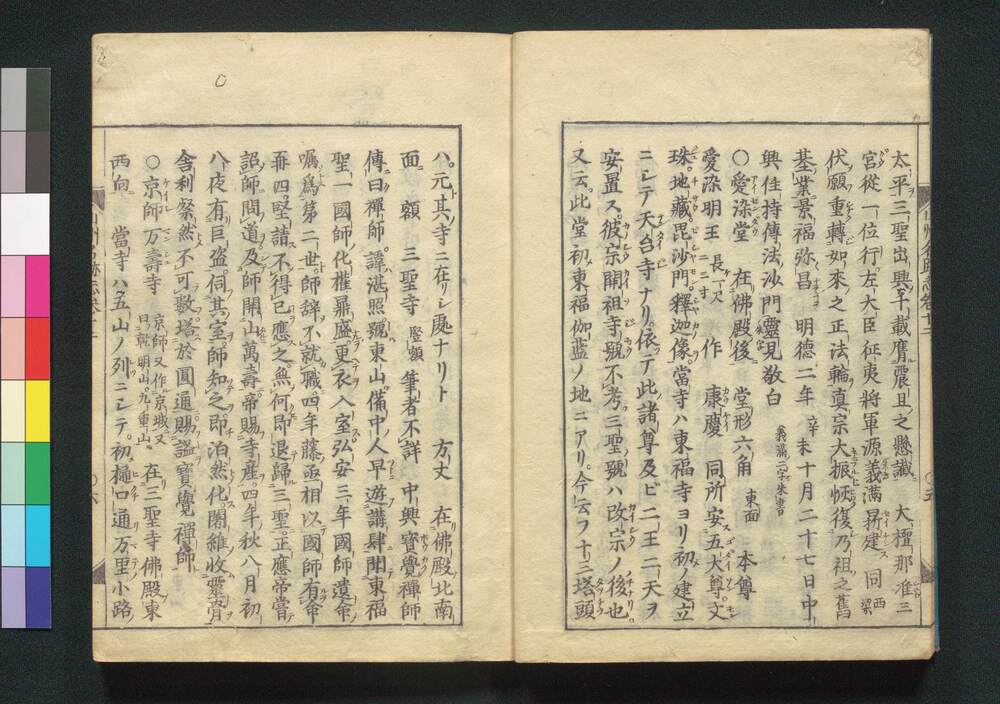 太平三聖出興千載膺震旦之懸讖 大檀那准三
宮從一位行左大臣征夷將軍源義滿昇建 同西梁
伏願重轉如來之正法輪真宗大振恢復乃祖之舊
基業景福弥昌 明德二年辛未十月二十七日中
興住持傳法沙門靈見敬白 義滿二字朱書
〇愛染堂 在佛殿後 堂形六角 東面 本尊
愛染明王 長一尺二寸 作 康慶 同所安五大尊文
珠地藏毘沙門釋迦像當寺ハ東福寺ヨリ初ノ建立
ニシテ天台寺ナリ依テ此諸尊及ビ二王二天ヲ
安置ス彼宗開祖寺號不考三聖號ハ改宗ノ後也
又云此堂初東福伽藍ノ地ニアリ今云フ十三塔頭
ハ元其寺ニ在リシ處ナリト 方丈 在佛殿北南
面 額 三聖寺 竪額 筆者不詳 中興寶覺禪師
傳曰禪師諱湛照號東山備中人早遊講肆聞東福
聖一國師化權鼎盛更衣入室弘安三年國師遺命
囑爲第二世師辞不就職四年藤丞相以國師有命
再四堅請不得已應之無何即退歸三聖正應帝嘗
詔師問道及師開山萬壽帝賜寺産四年秋八月初
八夜有巨盗伺其室師知之即泊然化闍維收靈骨
舎利粲然不可數塔於圓通賜謚寶覺禪師
〇京師万壽寺 京師又作京城又曰乾明山九重山 在三聖寺佛殿東
西向 當寺ハ五山ノ列ニシテ初樋口通万里小路